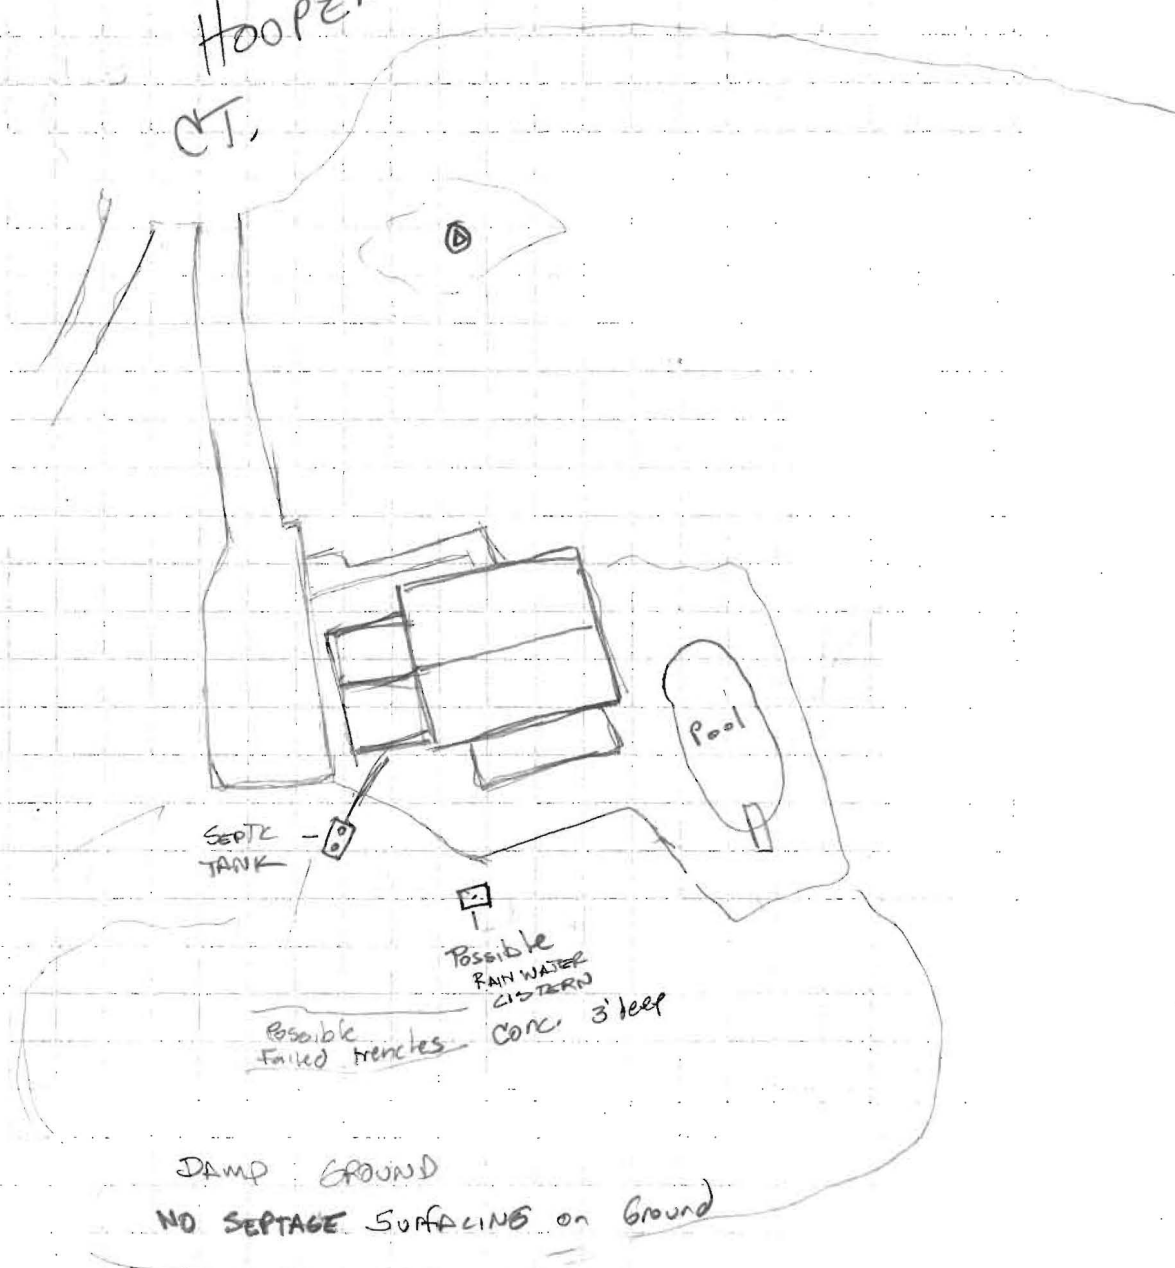 HOOPER
CT.
Pool
SEPTC
TANK
Possible
RAIN WATER
CISTERN
Conc. 3' deep
Possible
Failed trenches
DAMP GROUND
NO SEPTAGE SURFACING on Ground